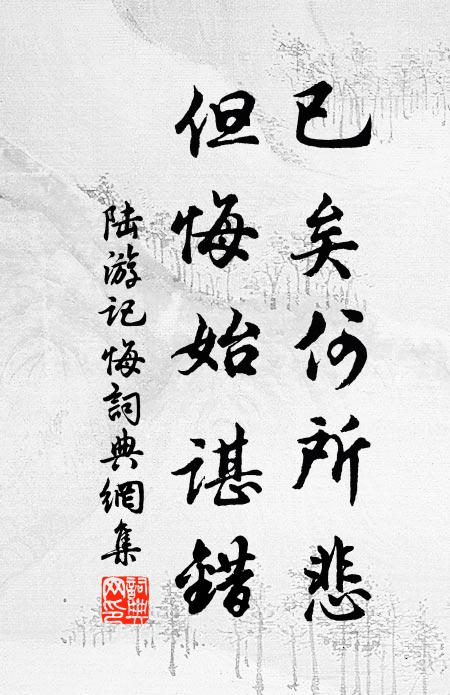 已矣何所悲
但悔始谌錯
陆游记悔詞典網集
詞典